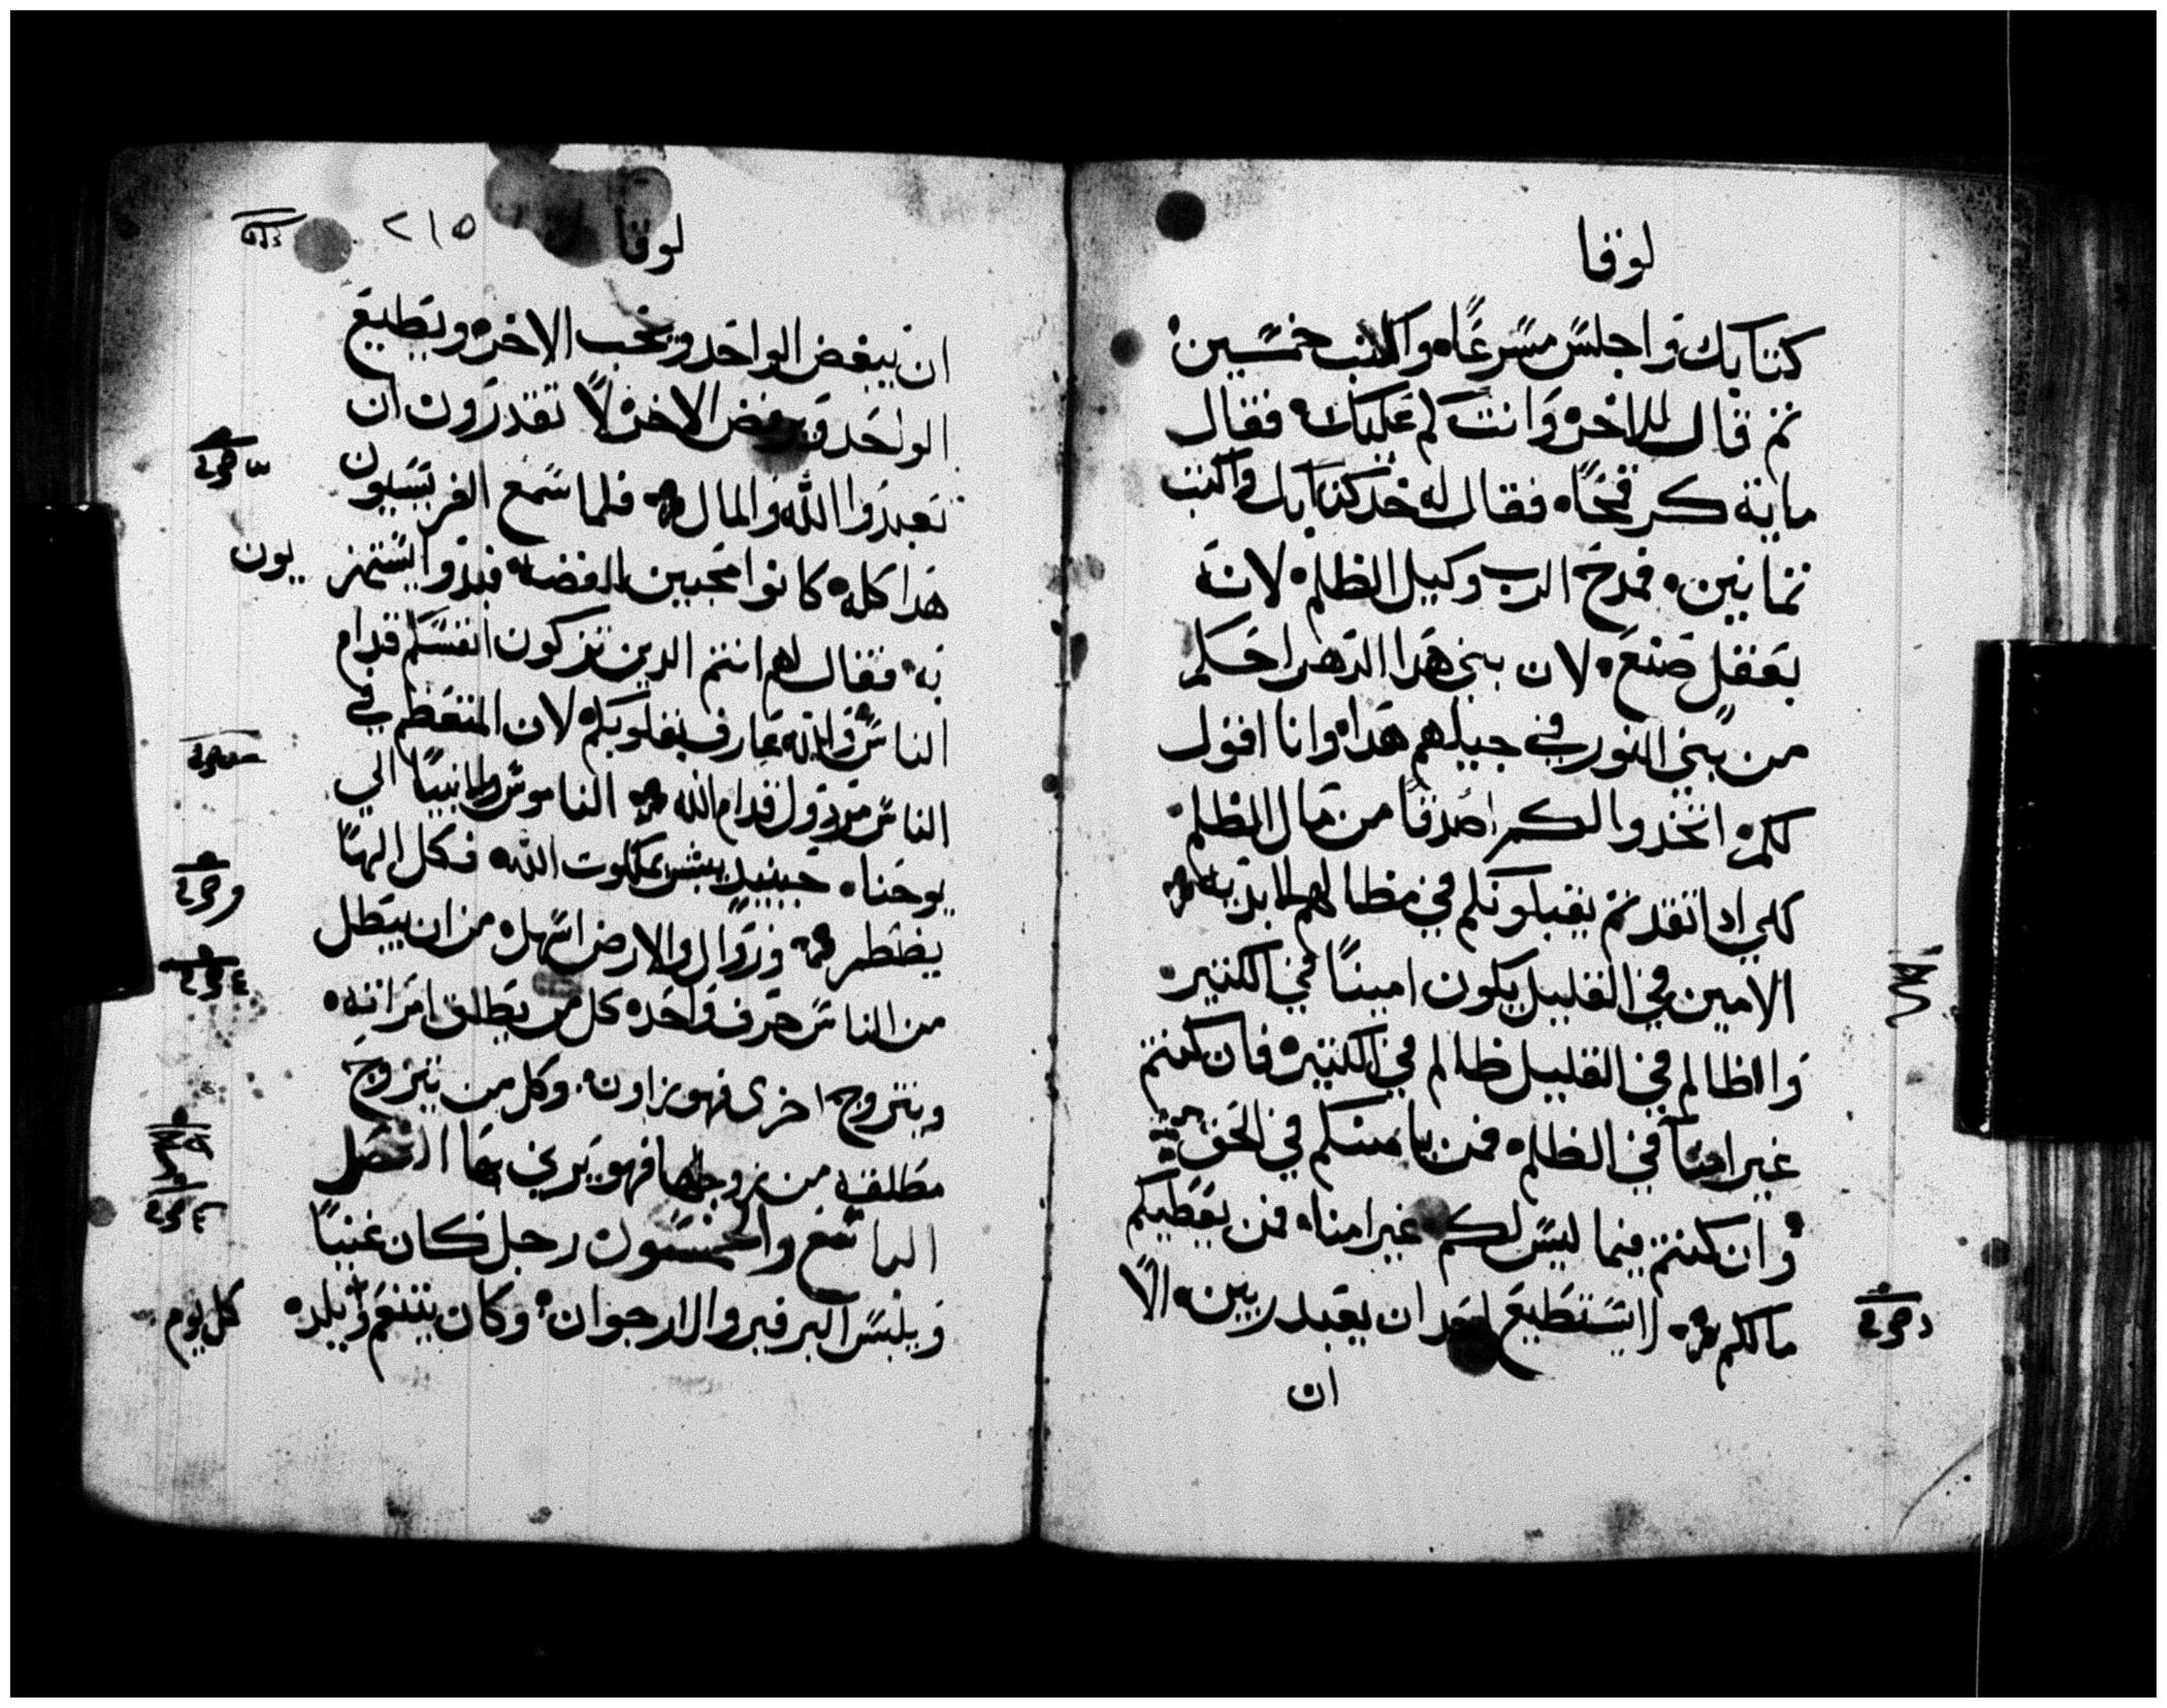 لوقا
كتابك واجلس مسرعًا، واكتب خمسين؛
ثم قال للاخر، وانت كم عليك، فقال
ماية كر قمحًا، فقال له خد كتابك واكتب
ثمانين، فمدح الرب وكيل الظلم، لانه
بعقل صنع، لان بني هدا الدهر احكم
من بني النور في جيلهم هدا، وانا اقول
لكم، اتخدوا لكم اصدقا من مال الظلم،
لكي ادا نقدتم يقبلونكم في مظالهم الابديه
الامين في القليل يكون امينًا في الكتير،
والظالم في القليل ظالم في الكتير، فان كنتم
غير امنآ في الظلم، فمن يامنكم في الحق
وان كنتم فيما ليس لكم غير امنا، فمن يعطيكم
مالكم، لا يستطيع احد ان يعبد ربين، الا
ان
لوقا
٢١٥
ان يبغض الواحد ويحب الاخر، ويطيع
الواحد ويرفض الاخر، لا تقدرون ان
تعبدوا الله والمال، فلما سمع الفريسيون
هدا كله، كانوا محبين الفضه، فبدوا يستهز
يون
به، فقال لهم انتم الدين تزكون انفسكم قدام
الناس، والله عارف بقلوبكم، لان المتعظم في
الناس مردول قدام الله، الناموس والانبيا الي
يوحنا، حينيد يبشر بملكوت الله، فكل اليها
يضطر، وزوال والارض اسهل، من ان يبطل
من الناس حرف واحد، كل من يطلق امراته،
ويتزوج اخري فهو زاون، وكل من يتزوج
مطلقه من زوجها فهو يزني بها الفصل
الرابع والخمسون رجل كان غنيًا
ويلبس البرفير والارجوان، وكان يتنعم ويلد،
كل يوم